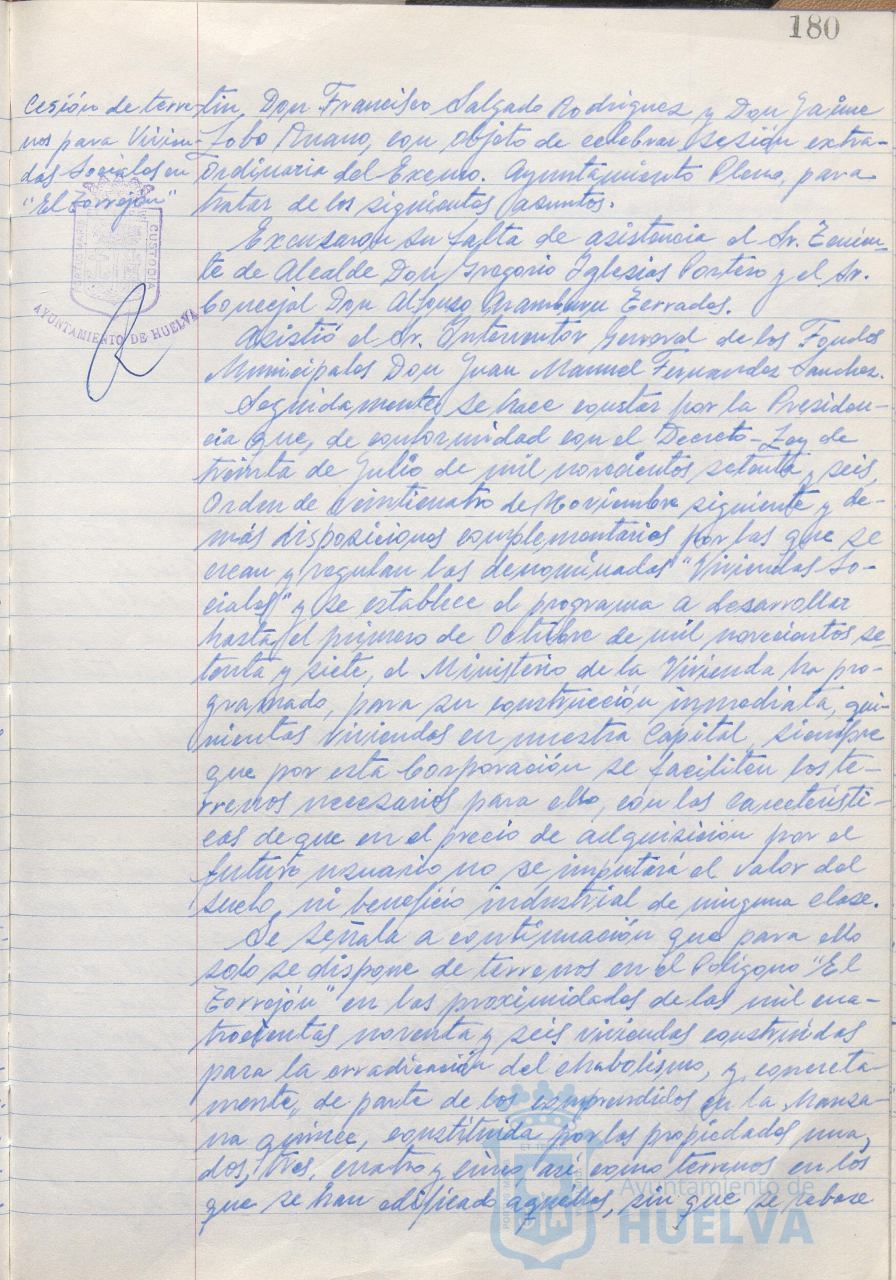 180
Cesión de terre-
nos para Vivien-
das Sociales en
"El Torrejón"
CUSTODIA
AYUNTAMIENTO DE HUELVA
tin, Don Francisco Salgado Rodriguez y Don Jaime
Lobo Ruano, con objeto de celebrar sesión extra-
ordinaria del Excmo. Ayuntamiento Pleno, para
tratar de los siguientes asuntos.
Excusaron su falta de asistencia el Sr. Tenien-
te de Alcalde Don Gregorio Iglesias Portero y el Sr.
Concejal Don Alfonso Aramburu Terrades.
Asistió el Sr. Interventor General de los Fondos
Municipales Don Juan Manuel Fernandez Sanchez.
Seguidamente se hace constar por la Presiden-
cia que, de conformidad con el Decreto-Ley de
treinta de Julio de mil novecientos setenta y seis,
Orden de veinticuatro de Noviembre siguiente y de-
más disposiciones complementarias por las que se
crean y regulan las denominadas "Viviendas So-
ciales" y se establece el programa a desarrollar
hasta el primero de Octubre de mil novecientos se-
tenta y siete, el Ministerio de la Vivienda ha pro-
gramado, para su construcción inmediata, qui-
nientas viviendas en nuestra Capital, siempre
que por esta Corporación se faciliten los te-
rrenos necesarios para ello, con las caracteristi-
cas de que en el precio de adquisición por el
futuro usuario no se imputará el valor del
suelo, ni beneficio industrial de ninguna clase.
Se señala a continuación que para ello
solo se dispone de terrenos en el Poligono "El
Torrejón" en las proximidades de las mil cua-
trocientas noventa y seis viviendas construidas
para la erradicación del chabolismo, y, concreta-
mente, de parte de los comprendidos en la Manza-
na quince, constituida por las propiedades una,
dos, tres, cuatro y cinco, así como terrenos en los
que se han edificado aquellas, sin que se rebase
Ayuntamiento de
HUELVA